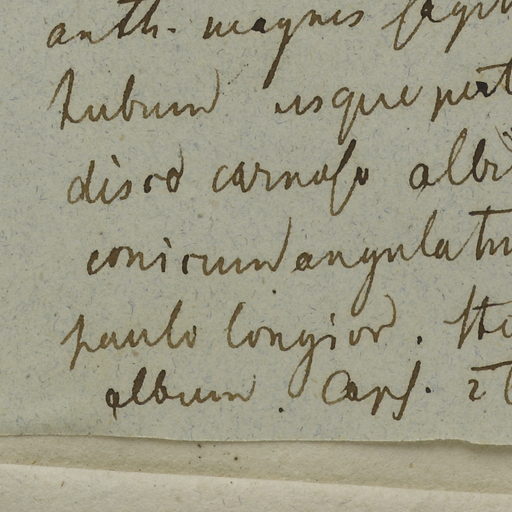 anth. magnis sagit
tubum usque pert
disco carnoso albi
conicum angulatu
paulo longior. Sti
album. Caps. 2